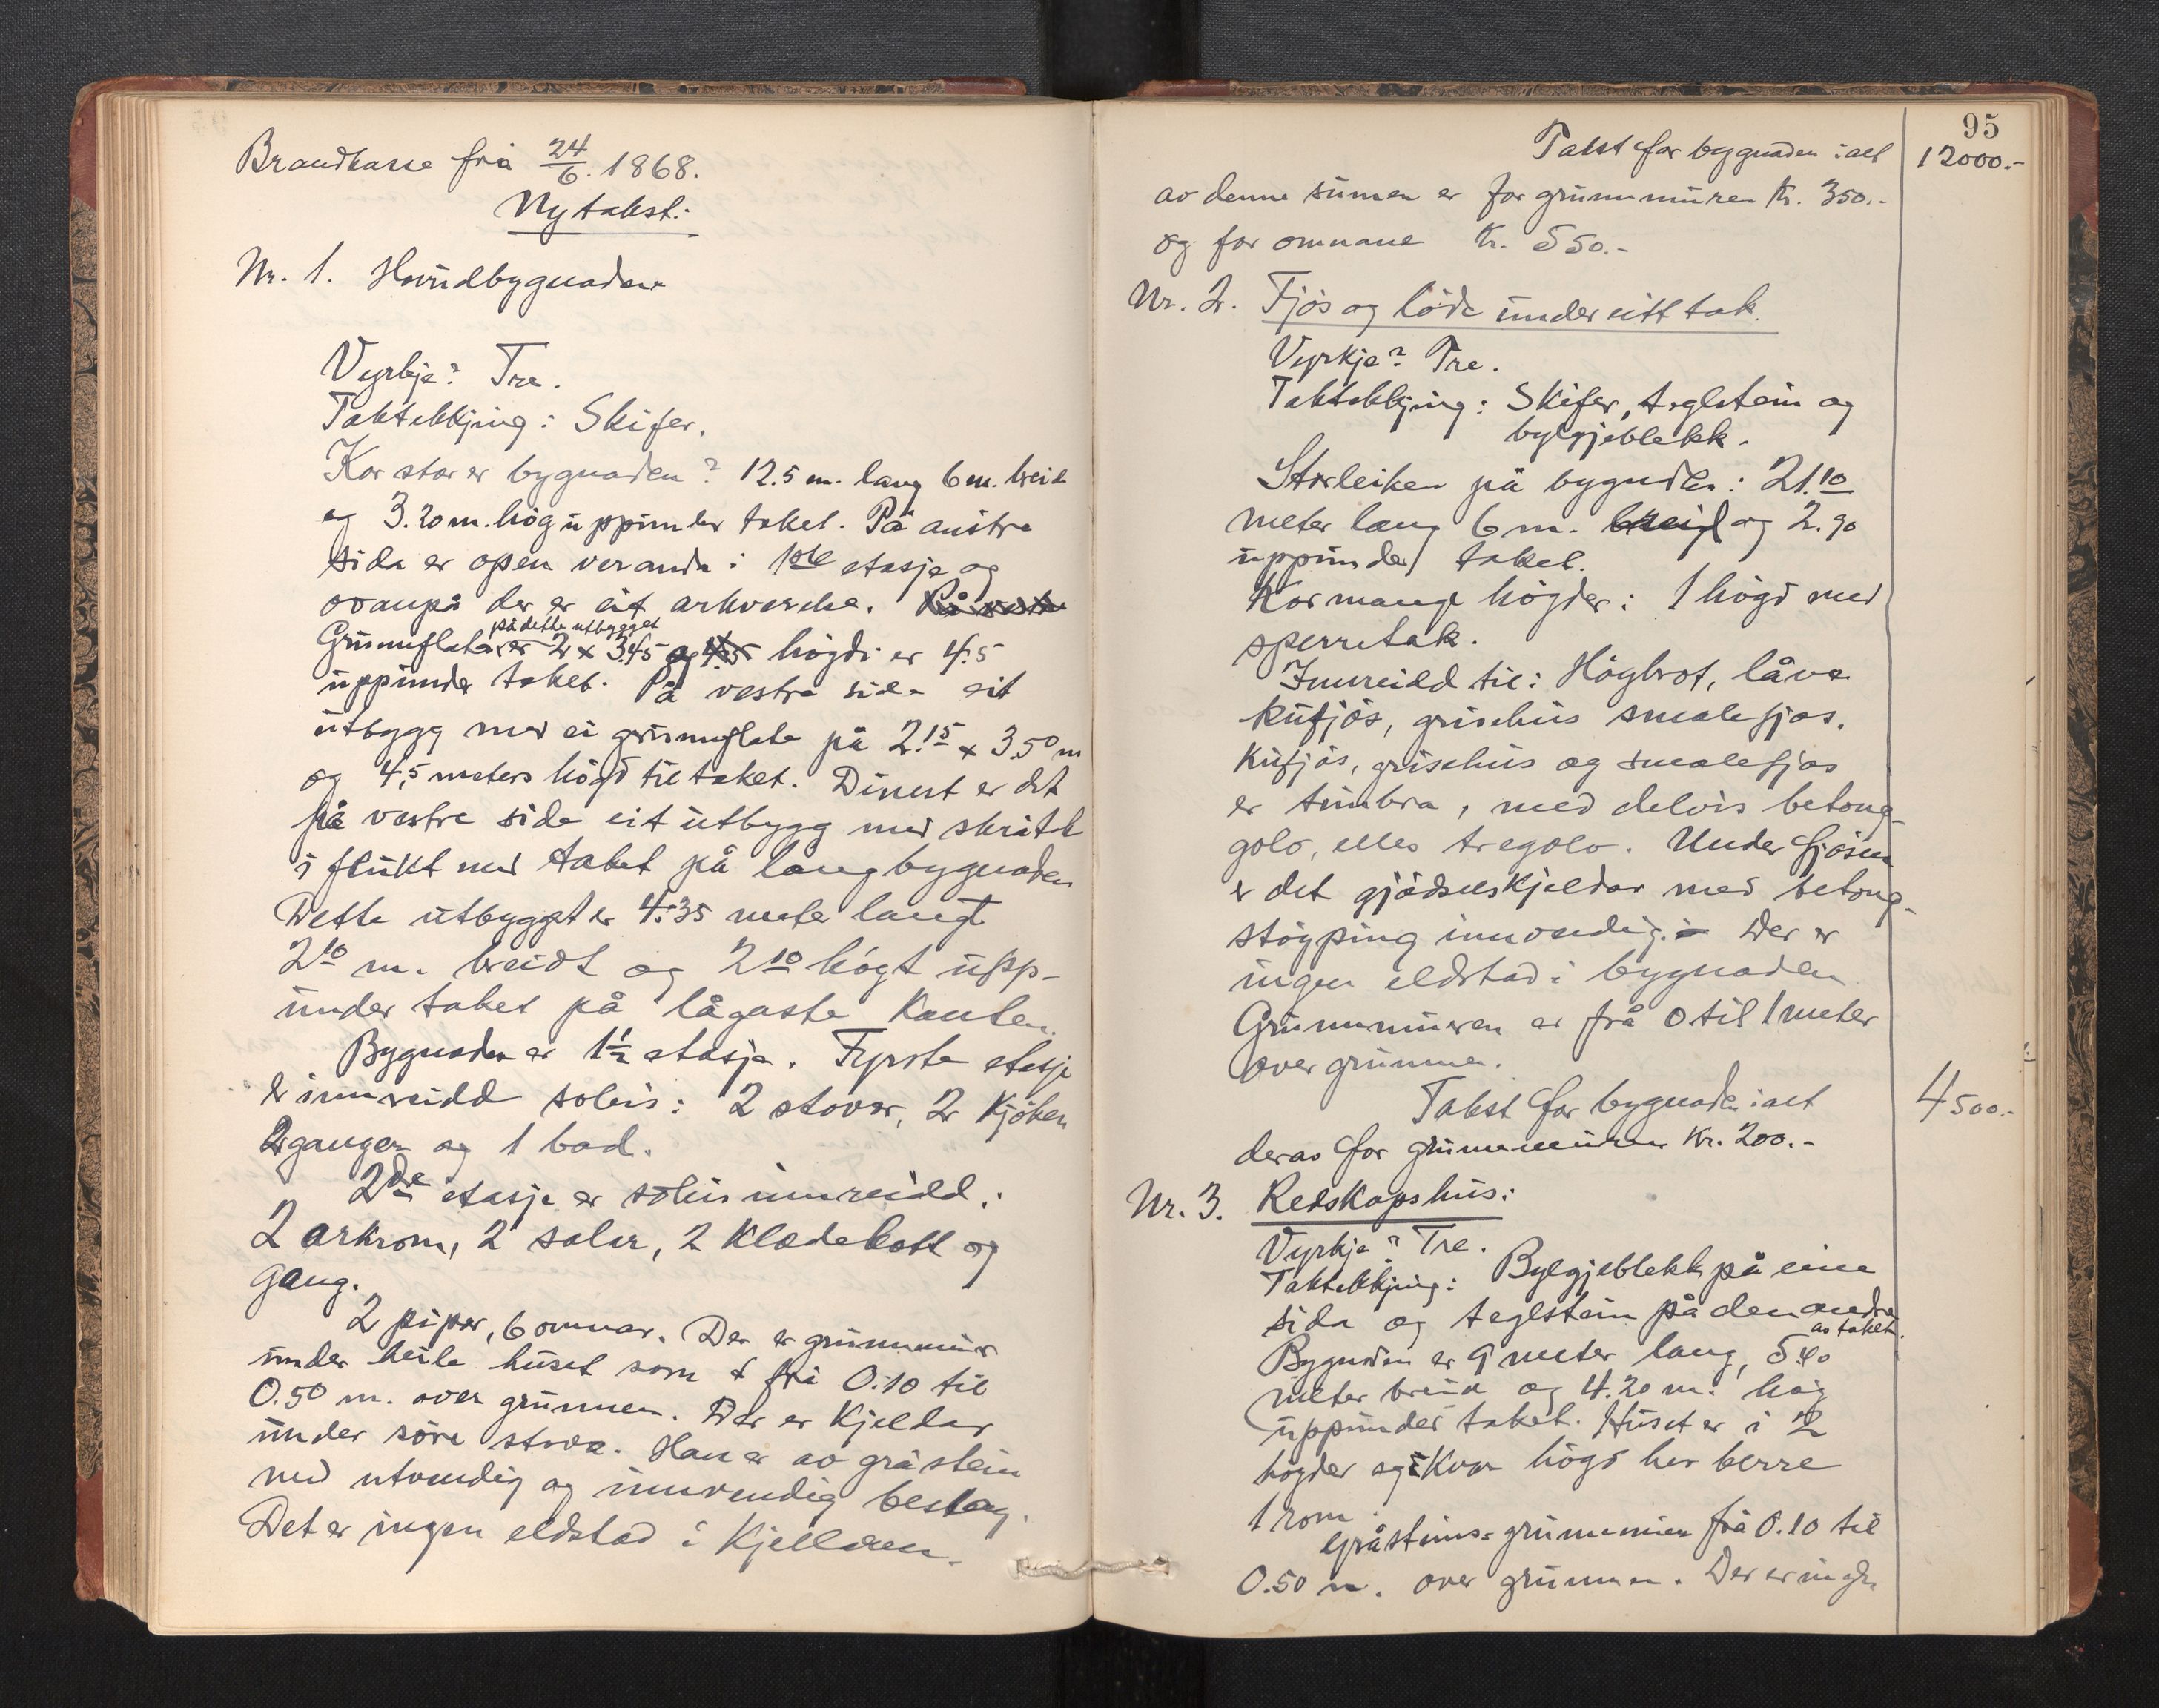 Brandkasse frå 24/6. 1868.
Ny takst:
Nr. 1. Hovudbygnaden
Vyrkje? Tre.
Taktekkjing: Skifer.
Kor stor er bygnaden? 12.5 m. lang 6 m. breid
og 3.20 m. høg uppunder taket. På austre
sida er open veranda i 1ste etasje og
ovanpå der er eit arkverelse. På vestre
på dette utbygget
Grunnflaten er 2 x 3.45 og 4.5 høgdi er 4.5
uppunder taket. På vestre sida eit
utbygg med ei grunnflate på 2.15 x 3.50 m
og 4,5 meters høgd til taket. Dinest er det
på vestre side eit utbygg med skråtak
i flukt med taket på langbygnaden
Dette utbygget er 4.35 meter langt
2.10 m. breidt og 2.10 høgt upp-
under taket på lågaste kanten.
Bygnaden er 1 1/2 etasje. Fyrste etasje
er innreidd soleis: 2 stover, 2 kjøken
2 ganger og 1 bad.
2dre etasje er soleis innreidd:
2 arkrom, 2 salar, 2 klædekott og
gang.
2 piper, 6 omnar. Der er grunnmur
under heile huset som er frå 0.10 til
0.50 m. over grunnen. Der er kjellar
under søre stova. Han er av gråstein
med utvendig og innvendig beslag.
Det er ingen eldstad i kjellaren.
95
Takst for bygnaden i alt 12000.-
av denne sumen er for grunnmuren kr. 350.-
og for omnane kr. 550.-
Nr. 2. Fjøs og løde under eitt tak.
Vyrkje? Tre.
Taktekkjing: Skifer, teglstein og
bylgjeblekk.
Storleiken på bygnaden: 21.10
meter lang 6 m. breid og 2.90
uppunder taket.
Kor mange høgder: 1 høgd med
sperretak.
Innreidd til: Høgbrot, låve
kufjøs, grisehus smalefjos.
Kufjøs, grisehus og smalefjos
er timbra, med delvis betong-
golv, elles tregolv. Under fjøsen
er det gjødselskjeldar med betong-
støyping innvendig. Der er
ingen eldstad i bygnaden
Grunnmuren er frå 0 til 1 meter
over grunnen.
Takst for bygnaden i alt 4500.-
derav for grunnmuren Kr. 200.-
Nr. 3. Redskapshus:
Vyrkje? Tre.
Taktekkjing: Bylgjeblekk på eine
sida og teglstein på den andre
av taket.
Bygnaden er 9 meter lang, 5.40
meter breid og 4.20 m. høg
uppunder taket. Huset er i 2
høgder og i kvar høgd her berre
1 rom.
Gråsteins-grunnmur frå 0.10 til
0.50 m. over grunnen. Der er ingen